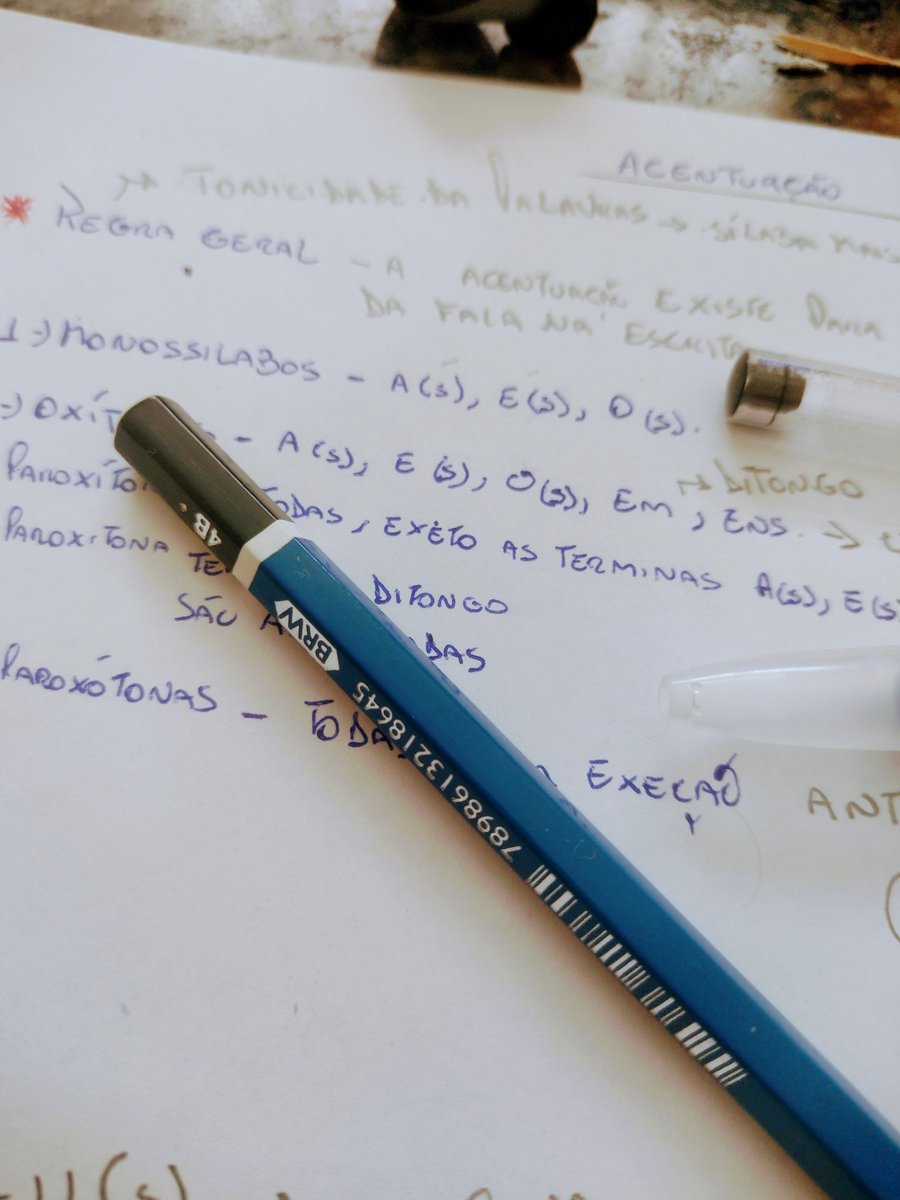 ACENTUAÇÃO
→ TONICIDADE DA PALAVRAS → SÍLABA MAIS
* REGRA GERAL - A ACENTUAÇÃO EXISTE PARA
DA FALA NA ESCRITA
1-) MONOSSILABOS - A(s), E(s), O(s).
-) OXÍT - A(s), E(s), O(s), EM, ENS.
→ DITONGO
PAROXÍTO ODAS, EXÉTO AS TERMINAS A(s), E(s
PAROXITONA TE DITONGO
SÃO A DAS
PAROXÓTONAS - TODA EXEÇÃO
ANT
4B
BRW
7898613218645